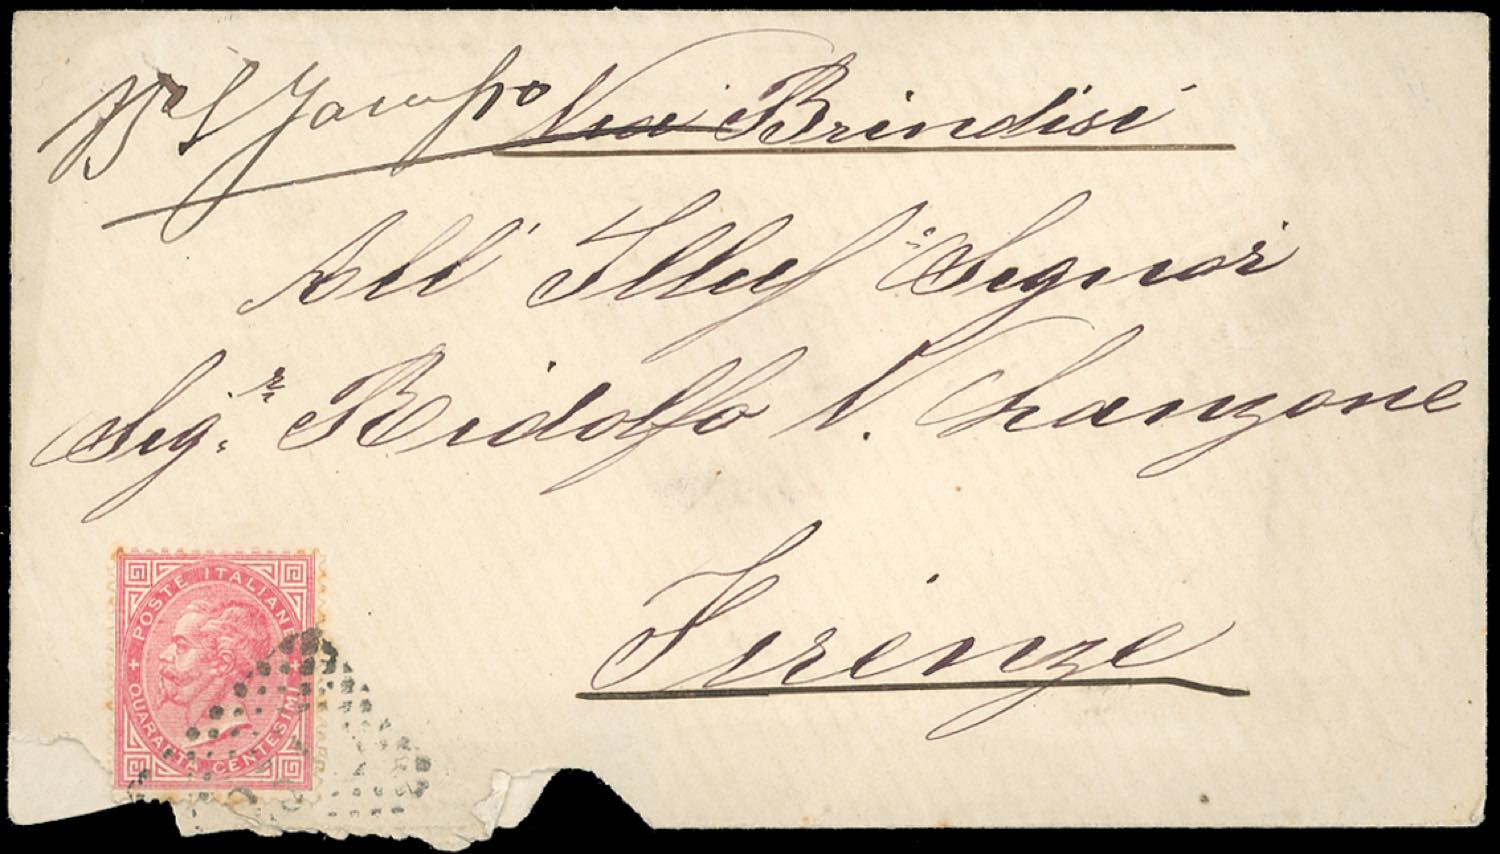 Via Brindisi
All' Illus Signor
Sig. r Ridolfo V. Lanzone
Firenze
+ POSTE ITALIANE +
QUARANTA CENTESIMI